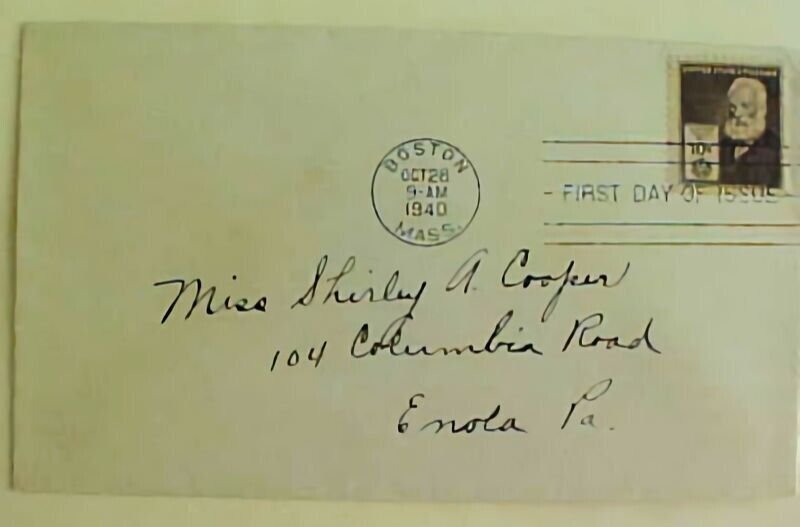 UNITED STATES POSTAGE
10¢
BOSTON
OCT 28
9-AM
1940
MASS.
- FIRST DAY OF ISSUE
Miss Shirley A. Cooper
104 Columbia Road
Enola Pa.